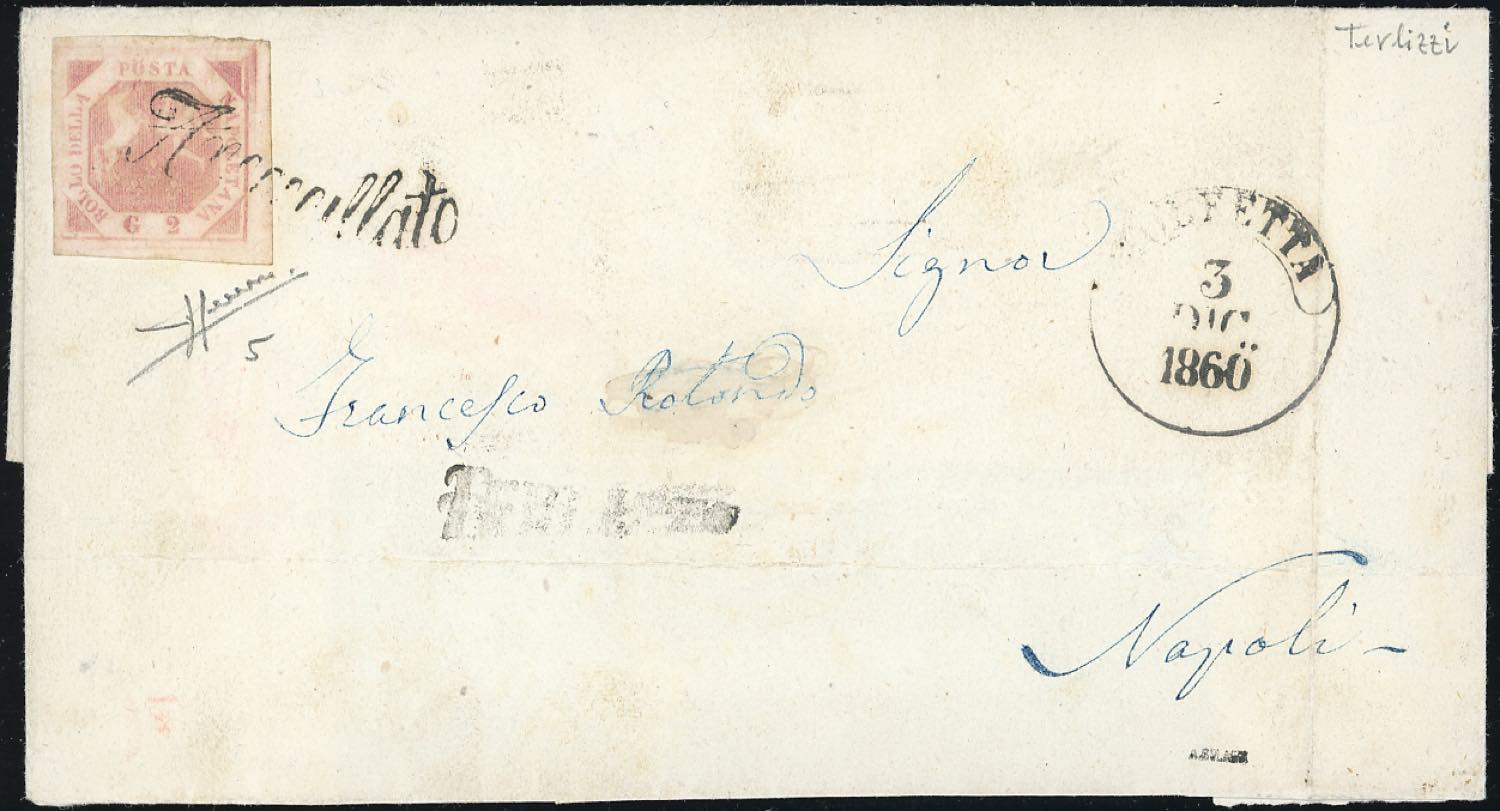 Terlizzi
POSTA
BOLLO DELLA
NAPOLETANA
G 2
Annullato
5
Signor
MOLFETTA
3
DIC
1860
Francesco Rotondo
Napoli